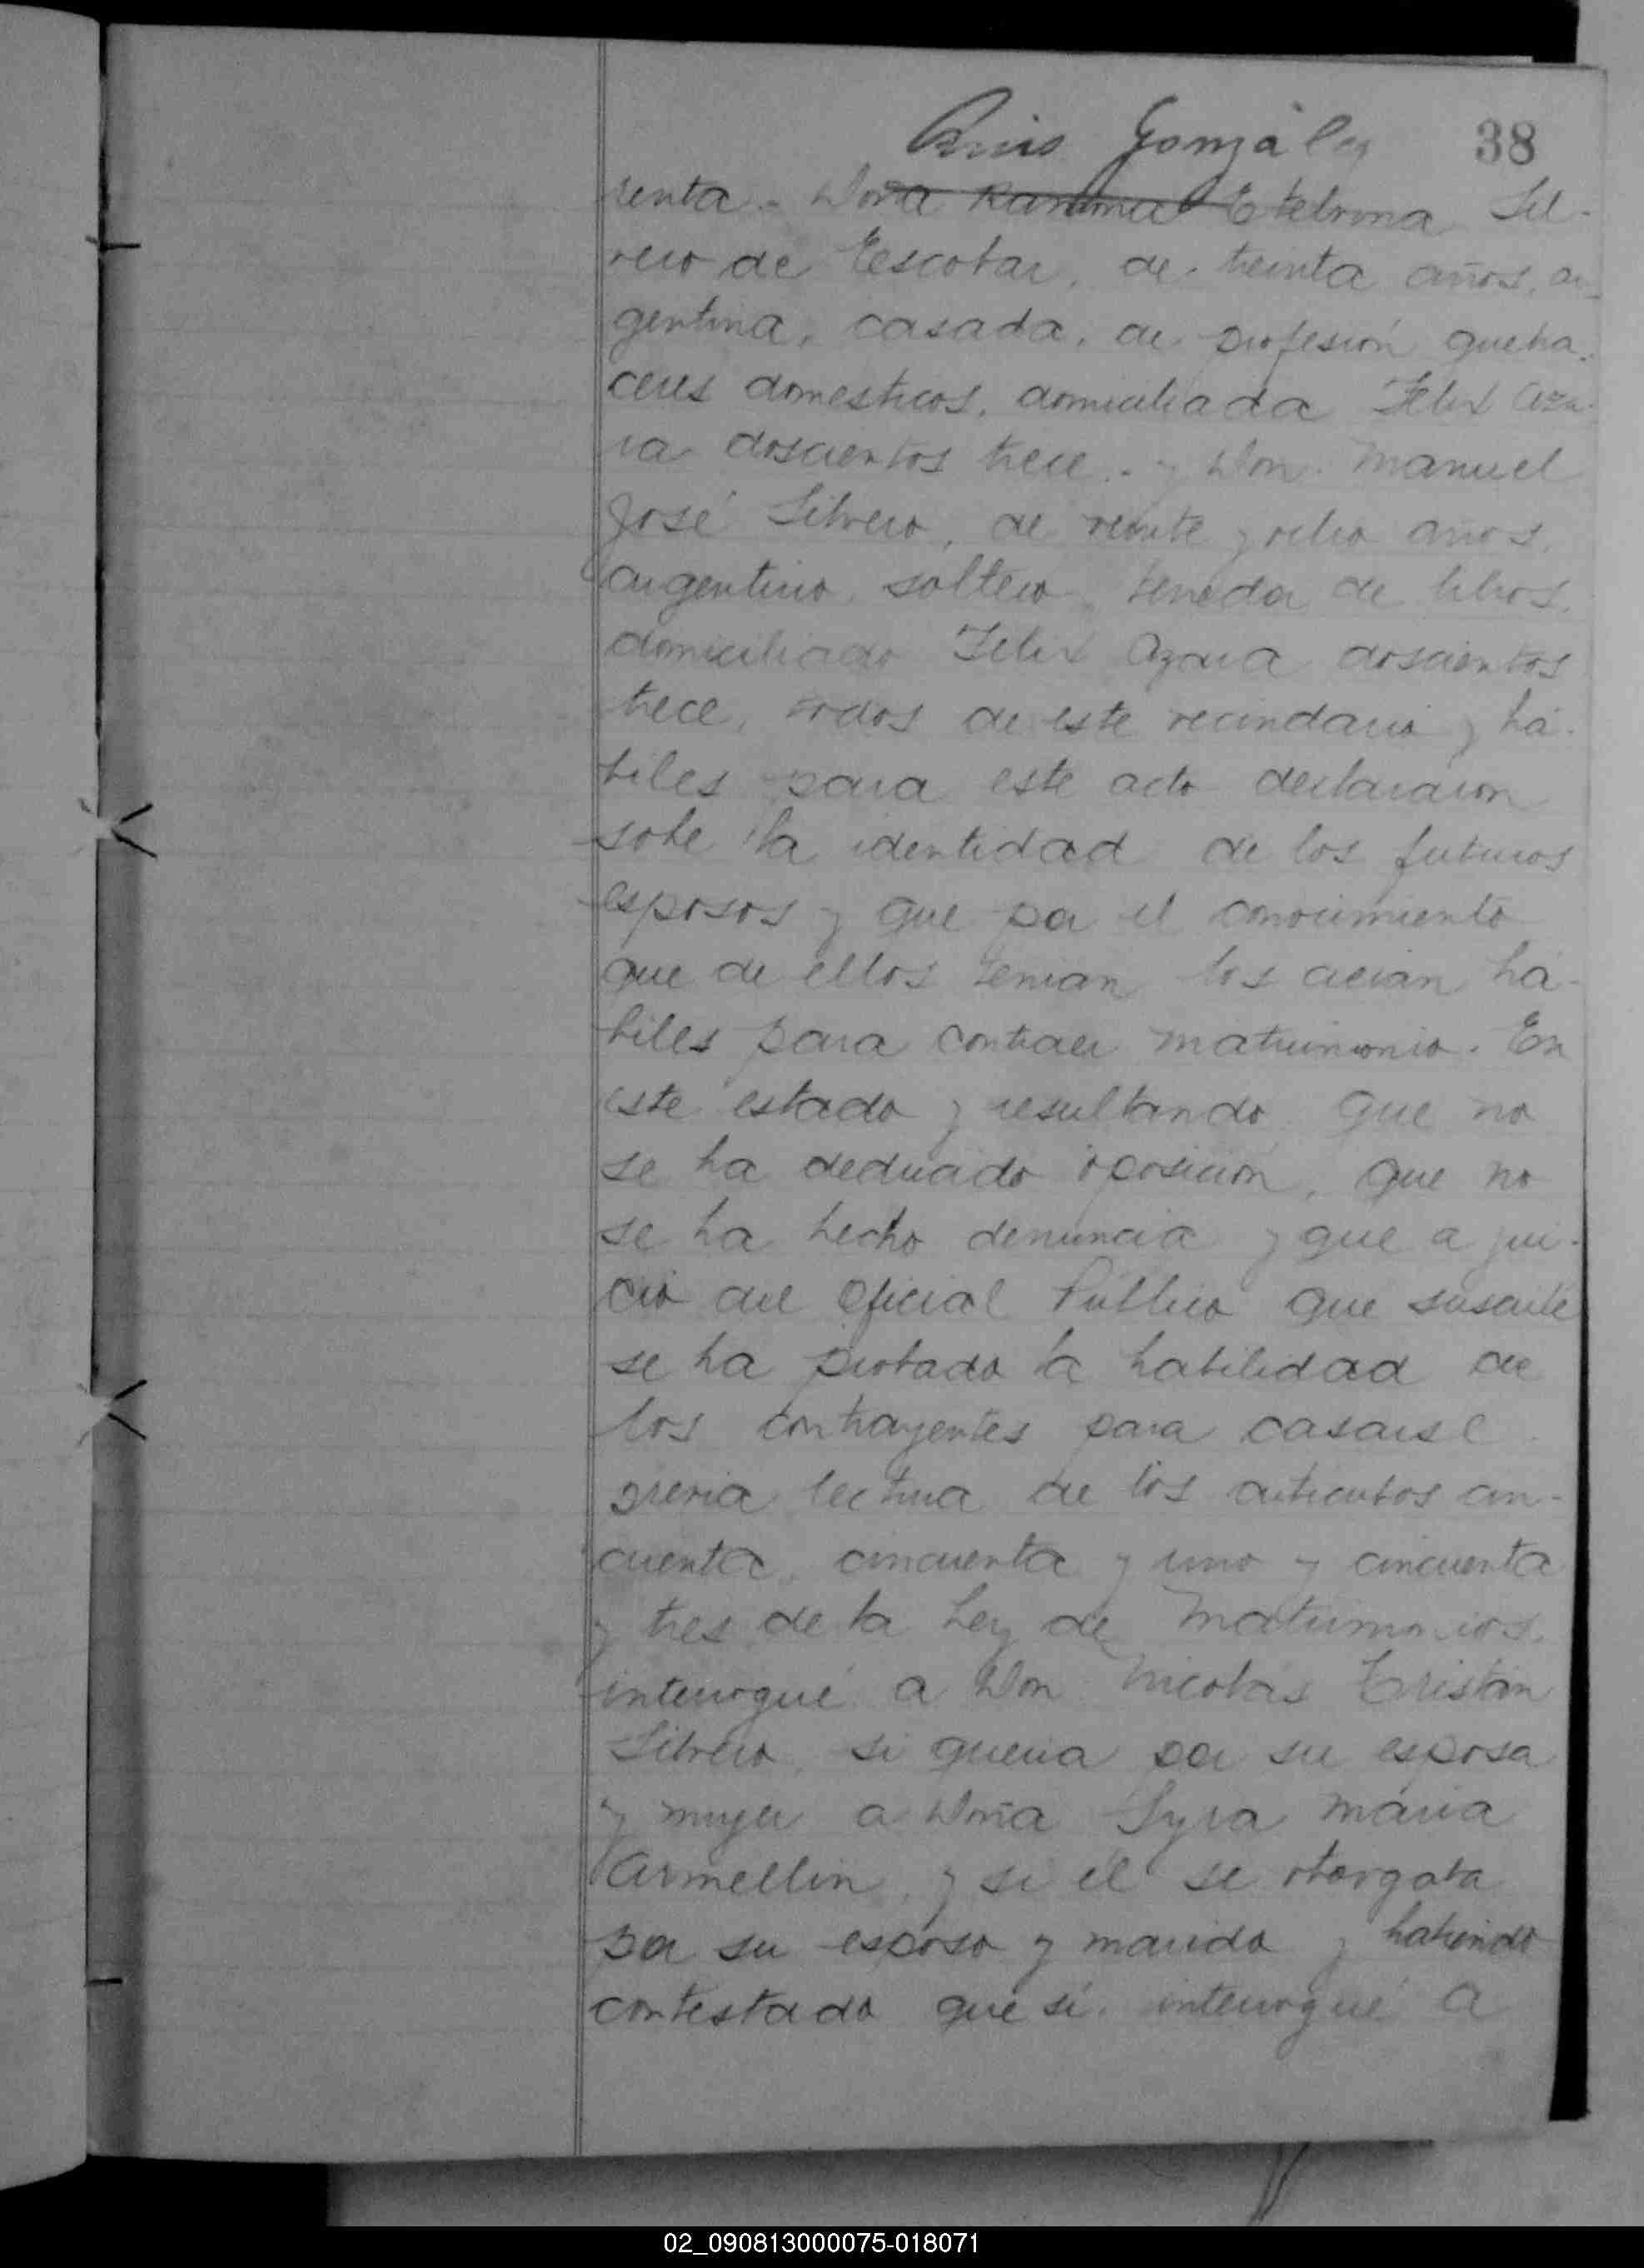 Luis González 38
renta.- Doña Ramona Etelvina Sil-
vero de Escobar, de treinta años, ar-
gentina, casada, de profesión queha-
ceres domesticos, domiciliada Felix Aza-
ra doscientos trece.- y Don Manuel
José Silvero, de veinte y ocho años,
argentino, soltero, tenedor de libros,
domiciliado Felix Azara doscientos
trece, todos de este vecindario y há-
biles para este acto declararon
sobre la identidad de los futuros
esposos y que por el conocimiento
que de ellos tenian los creian há-
biles para contraer matrimonio. En
este estado y resultando que no
se ha deducido oposición, que no
se ha hecho denuncia y que a jui-
cio del Oficial Público que suscribe
se ha probado la habilidad de
los contrayentes para casarse
previa lectura de los articulos cin-
cuenta, cincuenta y uno y cincuenta
y tres de la Ley de Matrimonios,
interrogué a Don Nicolás Cristian
Silvero, si queria por su esposa
y mujer a Doña Lyra Maria
Armellin, y si él se otorgaba
por su esposo y marido y habiendo
contestado que sí, interrogué a
02_090813000075-018071